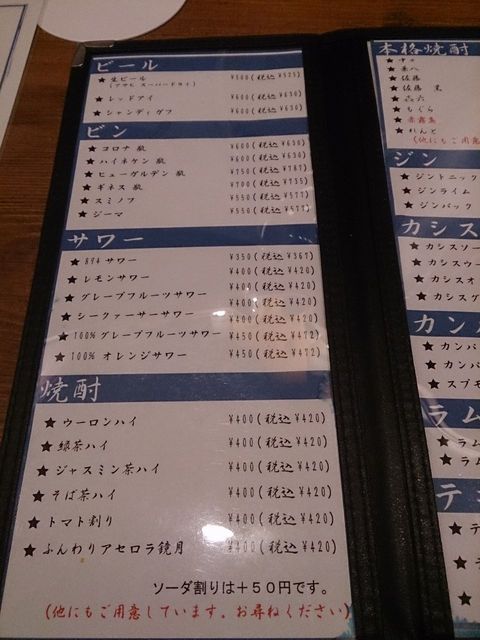 ビール
★ 生ビール ¥500(税込¥525)
(アサヒ スーパードライ)
★ レッドアイ ¥600(税込¥630)
★ シャンディガフ ¥600(税込¥630)
ビン
★ コロナ 瓶 ¥600(税込¥630)
★ ハイネケン 瓶 ¥600(税込¥630)
★ ヒューガルデン 瓶 ¥750(税込¥787)
★ ギネス 瓶 ¥700(税込¥735)
★ スミノフ ¥550(税込¥577)
★ ジーマ ¥550(税込¥577)
サワー
★ サワー ¥350(税込¥367)
★ レモンサワー ¥400(税込¥420)
★ グレープフルーツサワー ¥400(税込¥420)
★ シークァーサーサワー ¥400(税込¥420)
★ 100% グレープフルーツサワー ¥450(税込¥472)
★ 100% オレンジサワー ¥450(税込¥472)
焼酎
★ ウーロンハイ ¥400(税込¥420)
★ 緑茶ハイ ¥400(税込¥420)
★ ジャスミン茶ハイ ¥400(税込¥420)
★ そば茶ハイ ¥400(税込¥420)
★ トマト割り ¥400(税込¥420)
★ ふんわりアセロラ鏡月 ¥400(税込¥420)
ソーダ割りは＋50円です。
(他にもご用意しています。お尋ねください)
本格焼酎
★ 中々
★ 兼八
★ 佐藤
★ 佐藤 黒
★ 㐂六
★ もぐら
★ 赤霧島
★ れんと
(他にもご用意
ジン
★ ジントニック
★ ジンライム
★ ジンバック
カシス
★ カシスソー
★ カシスウー
★ カシスオ
★ カシスグ
カンパ
★ カンパ
★ カンパ
★ スプモ
ラム
★ ラム
★ ラム
テ
★ テ
★
★